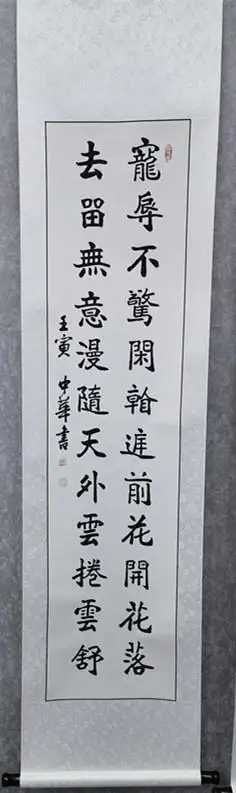 寵辱不驚閑看庭前花開花落
去留無意漫隨天外雲捲雲舒
壬寅 中華書